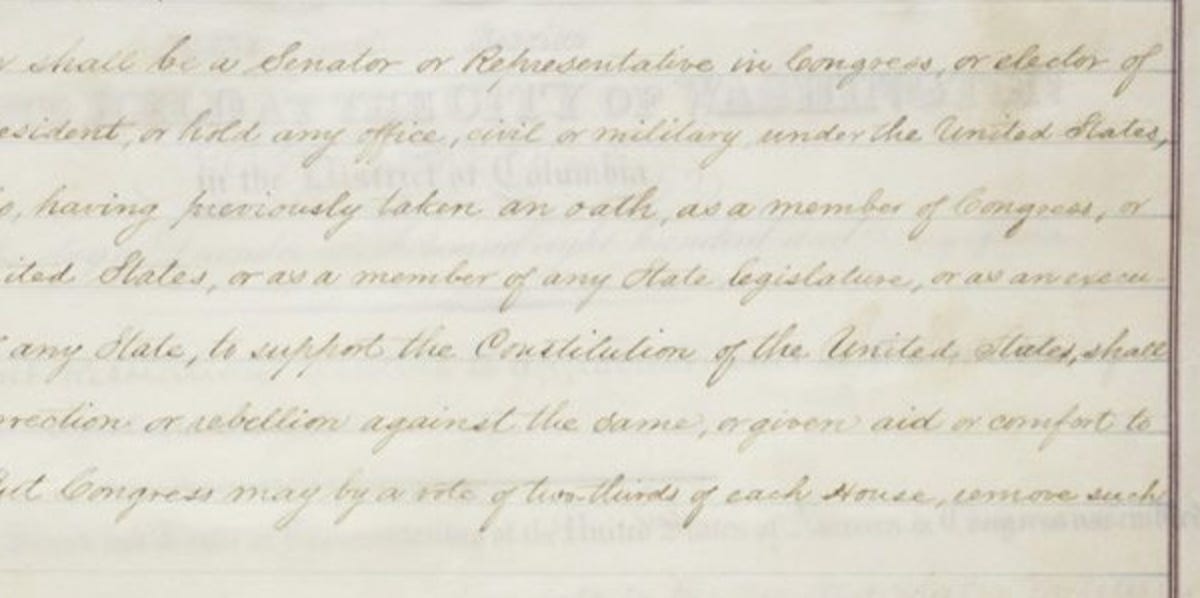 shall be a Senator or Representative in Congress, or elector of
esident, or hold any office, civil or military, under the United States,
o, having previously taken an oath, as a member of Congress, or
ited States, or as a member of any State legislature, or as an execu-
any State, to support the Constitution of the United States, shall
rrection or rebellion against the same, or given aid or comfort to
But Congress may by a vote of two-thirds of each House, remove such